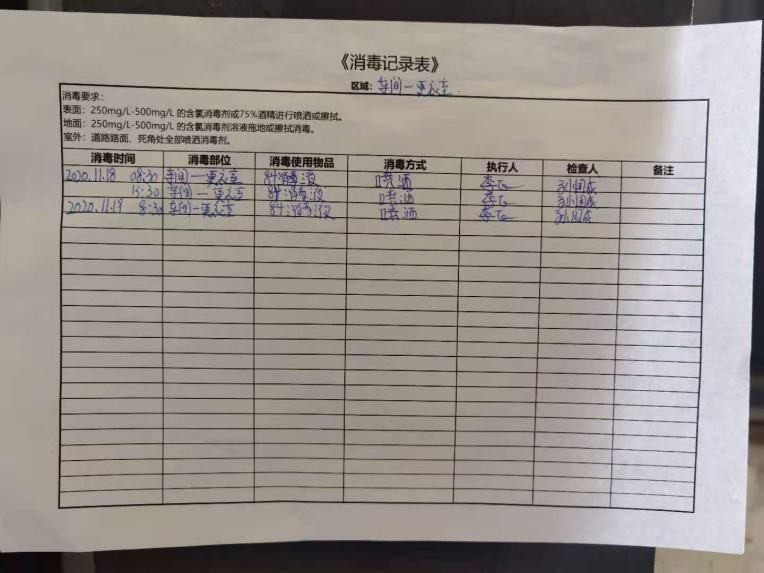 《消毒记录表》
区域：车间一更衣室
消毒要求：
表面：250mg/L-500mg/L 的含氯消毒剂或75%酒精进行喷洒或擦拭。
地面：250mg/L-500mg/L 的含氯消毒剂溶液拖地或擦拭消毒。
室外：道路路面、死角处全部喷洒消毒剂。
消毒时间 消毒部位 消毒使用物品 消毒方式 执行人 检查人 备注
2020.11.18 08:30 车间一更衣室 84消毒液 喷洒 李飞 孙国成
15:30 车间一更衣室 84消毒液 喷洒 李飞 孙国成
2020.11.19 8:30 车间一更衣室 84消毒液 喷洒 李飞 孙国成